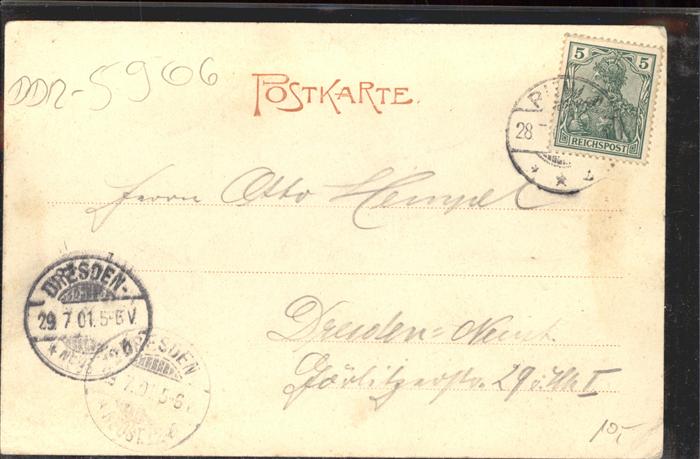 DDR-5906
POSTKARTE.
5 5
REICHSPOST
28
Herrn Otto Hempel
DRESDEN-
29.7.01.5-6V.
Dresden-Neust.
Görlitzerstr. 29
DRESDEN
7.01.5-6V
10,-